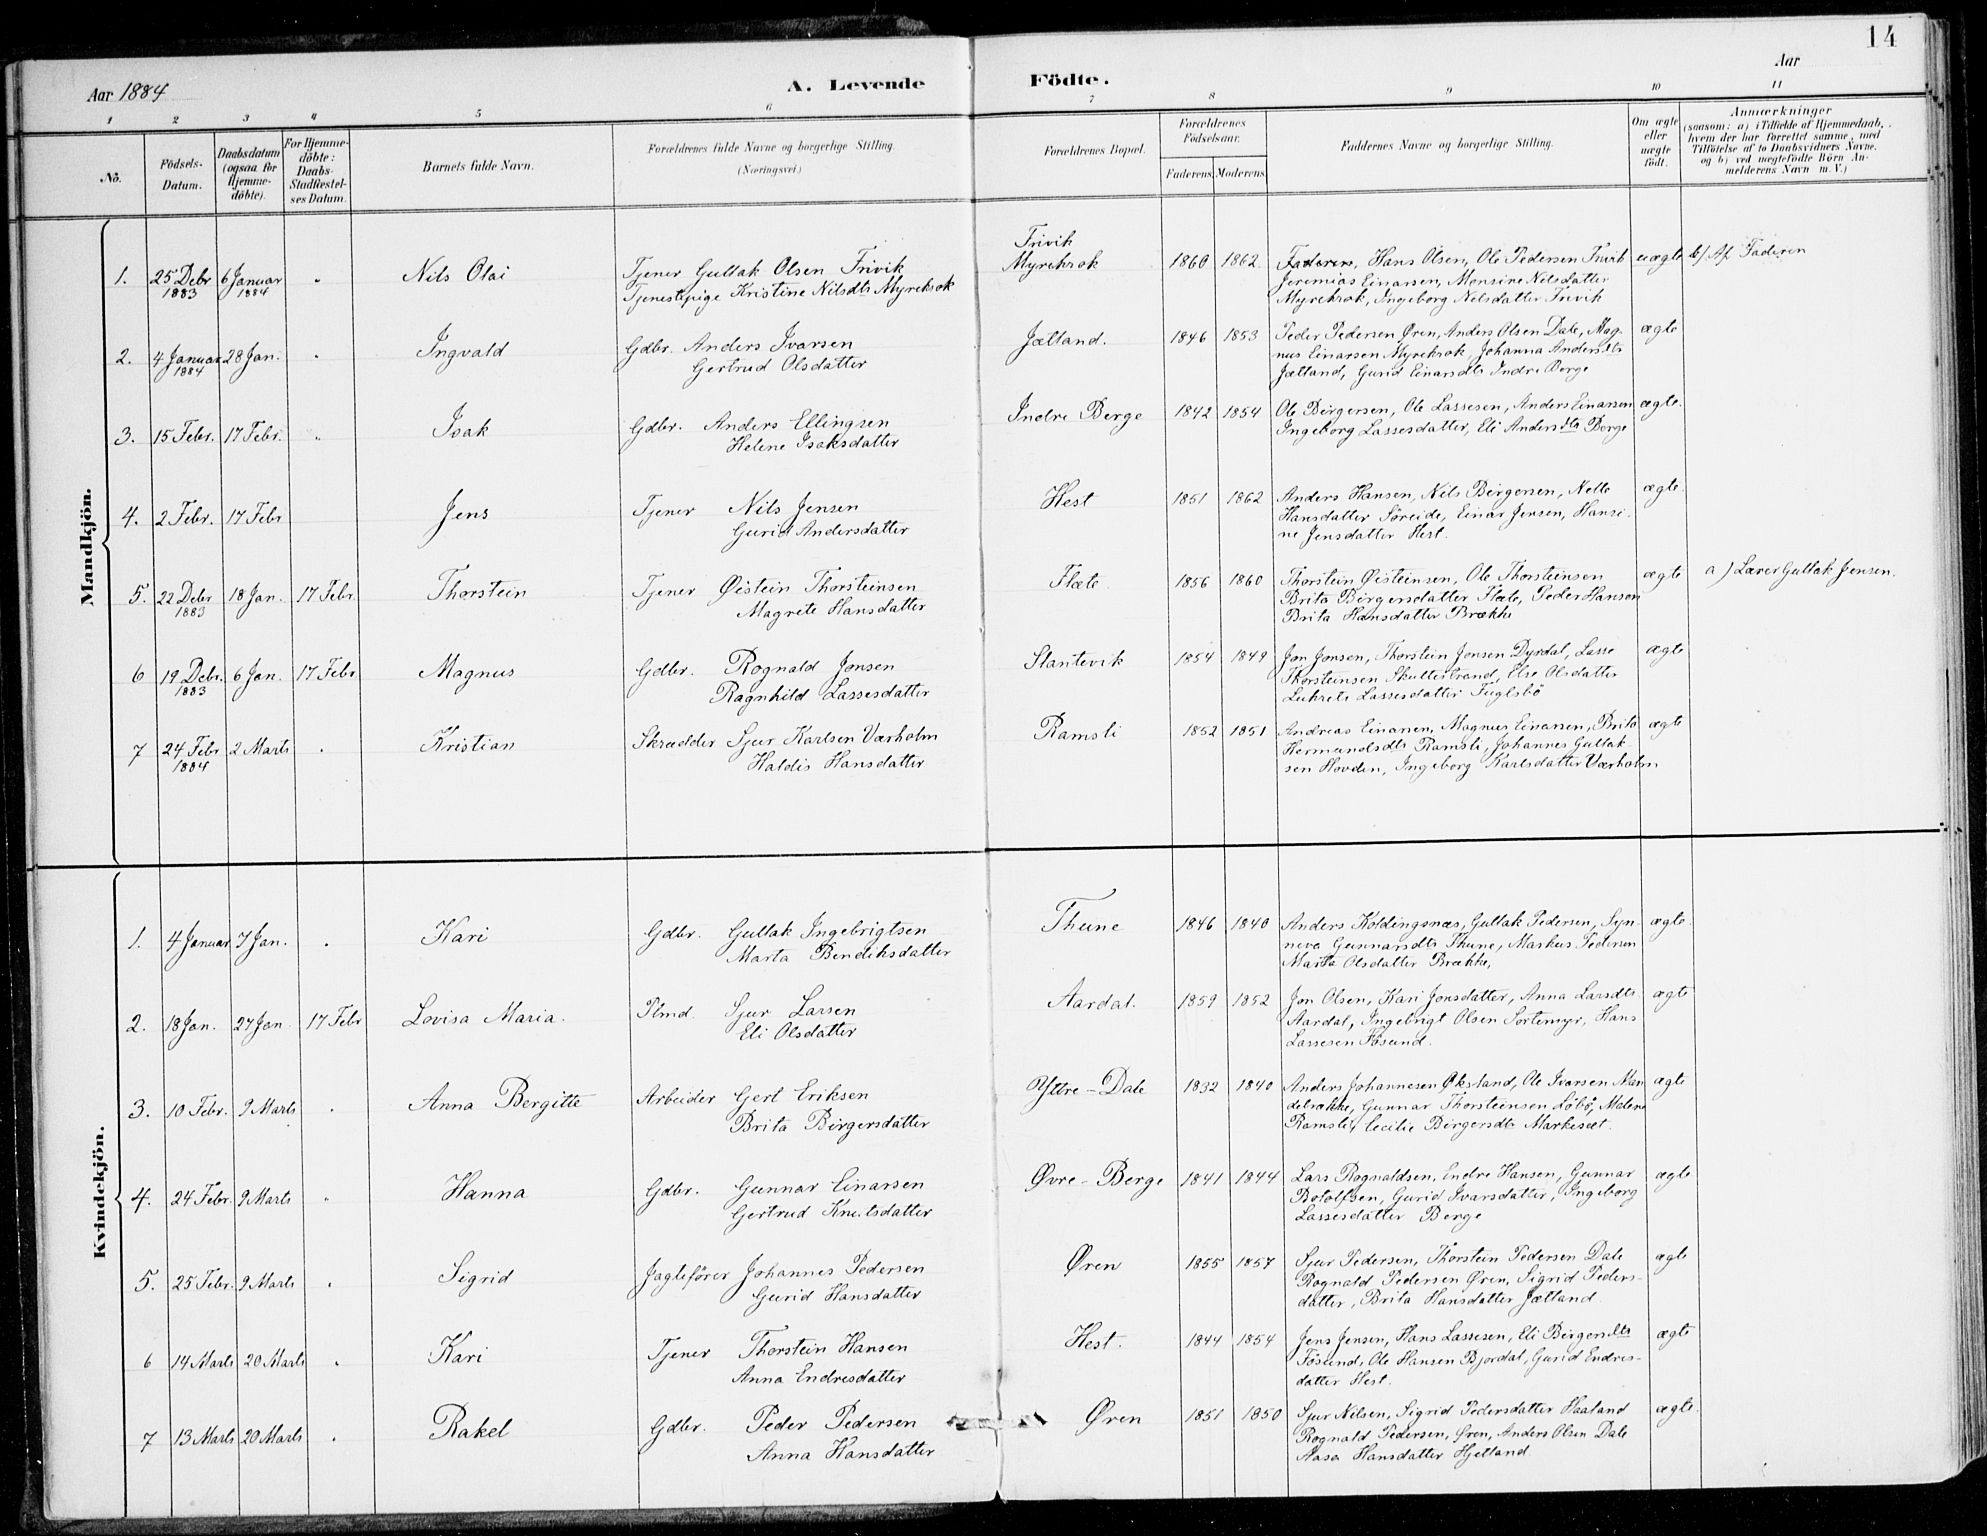 14
Aar 1884
A. Levende Födte.
Aar
1 2 3 4 5 6 7 8 9 10 11
No.
Födsels-Datum.
Daabsdatum (ogsaa for Hjemme-döbte).
For Hjemme-döbte: Daabs-Stadfæstel-ses Datum.
Barnets fulde Navn.
Forældrenes fulde Navne og borgerlige Stilling. (Næringsvei.)
Forældrenes Bopæl.
Forældrenes Födselsaar.
Faderens. Moderens.
Faddernes Navne og borgerlige Stilling.
Om ægte eller uægte födt.
Anmærkninger
(saasom: a) i Tilfælde af Hjemmedaab,
hvem der har forrettet samme, med
Tilföielse af to Daabsvidners Navne,
og b) ved uægtefödte Börn An-
melderens Navn m. V.)
Mandkjön.
1. 25 Debr 1883 6 Januar 1884 " Nils Olai Tjener Gullak Olsen Trivik Trivik 1860 1862 Faderen, Hans Olsen, Ole Pedersen Trivik uægte b) Af Faderen
Tjenestepige Kristine Nilsdtr Myrekrok Myrekrok Jeremias Einarsen, Monsine Nilsdatter
Myrekrok, Ingeborg Nilsdatter Trivik
2. 4 Januar 1884 28 Jan. " Ingvald Gdbr. Anders Ivarsen Jætland. 1846 1853 Peder Pedersen Øren, Anders Olsen Dale, Mag- ægte
Gertrud Olsdatter nus Einarsen Myrekrok, Johanna Andersdtr
Jætland, Gurid Einarsdtr Indre Berge
3. 15 Febr. 17 Febr. " Isak Gdbr. Anders Ellingsen Indre Berge 1842 1854 Ole Birgersen, Ole Lassesen, Anders Einarsen ægte.
Helene Isaksdatter Ingeborg Lassesdatter, Eli Andersdtr Berge
4. 2 Febr. 17 Febr Jens Tjener Nils Jensen Hest 1851 1862 Anders Hansen, Nils Birgersen, Nelle ægte.
Gurid Andersdatter Hansdatter Søreide, Einar Jensen, Hansi-
ne Jensdatter Hest.
5. 22 Debr 1883 18 Jan. 17 Febr Thorstein Tjener Øistein Thorsteinsen Flæte 1856 1860 Thorstein Øisteinsen, Ole Thorsteinsen ægte a) Lærer Gullak Jensen.
Magrete Hansdatter Brita Birgersdatter Flæte, Peder Hansen
Brita Hansdatter Brække
6 19 Debr. 1883 6 Jan. 17 Febr Magnus Gdbr. Rognald Jonsen Slantevik 1854 1849 Jon Jonsen, Thorstein Jonsen Dyrdal, Lasse ægte
Ragnhild Lassesdatter Thorsteinsen Skullestrand, Else Olsdatter
Lukrets Lassesdatter Fuglsbö
7 24 Febr 1884 2 Marts " Kristian Skrædder Sjur Karlsen Værholm Ramsli 1852 1851 Andreas Einarsen, Magnus Einarsen, Brita ægte
Haldis Hansdatter Hermundsdtr Ramsli, Johannes Gullak-
sen Hovden, Ingeborg Karlsdatter Værholm
Kvindekjön.
1. 4 Januar 7 Jan. " Kari Gdbr. Gullak Ingebrigtsen Thune 1846 1840 Anders Koldingsnæs, Gullak Pedersen, Syn- ægte.
Marta Bendiksdatter neva Gunnarsdtr Thune, Markus Pedersen
Marta Olsdatter Brække,
2. 18 Jan. 27 Jan. 17 Febr Lovisa Maria. Plmd. Sjur Larsen Aardal. 1859 1852 Jon Olsen, Kari Jonsdatter, Anna Larsdtr ægte
Eli Olsdatter Aardal, Ingebrigt Olsen Sortemyr, Hans
Lassesen Fösund.
3. 10 Febr. 9 Marts " Anna Bergitte Arbeider Gert Eriksen Yttre-Dale 1832 1840 Anders Johannesen Øksland, Ole Ivarsen Man ægte
Brita Birgersdatter debrække, Gunnar Thorsteinsen Löbö, Malene
Ramsli, Cecilie Birgersdtr Markeset.
4. 24 Febr. 9 Marts " Hanna Gdbr. Gunnar Einarsen Øvre-Berge 1841 1844 Lars Rognaldsen, Endre Hansen, Gunnar ægte
Gertrud Knutsdatter Botolfsen, Gurid Ivarsdatter, Ingeborg
Lassesdatter Berge
5. 25 Febr. 9 Marts " Sigrid Jagtefører Johannes Pedersen Øren 1855 1857 Sjur Pedersen, Thorstein Pedersen Dale ægte
Gurid Hansdatter Rognald Pedersen Øren, Sigrid Peders-
datter, Brita Hansdatter Jætland.
6 14 Marts 20 Marts " Kari Tjener Thorstein Hansen Hest. 1844 1854 Jens Jensen, Hans Lassesen, Eli Birgersdtr ægte
Anna Endresdatter Fösund, Ole Hansen Bjordal, Gurid Endres-
datter Hest.
7 13 Marts 20 Marts " Rakel Gdbr. Peder Pedersen Øren 1851 1850 Sjur Nilsen, Sigrid Pedersdatter Haaland ægte.
Anna Hansdatter Rognald Pedersen, Øren, Anders Olsen Dale
Aasa Hansdatter Hjetland